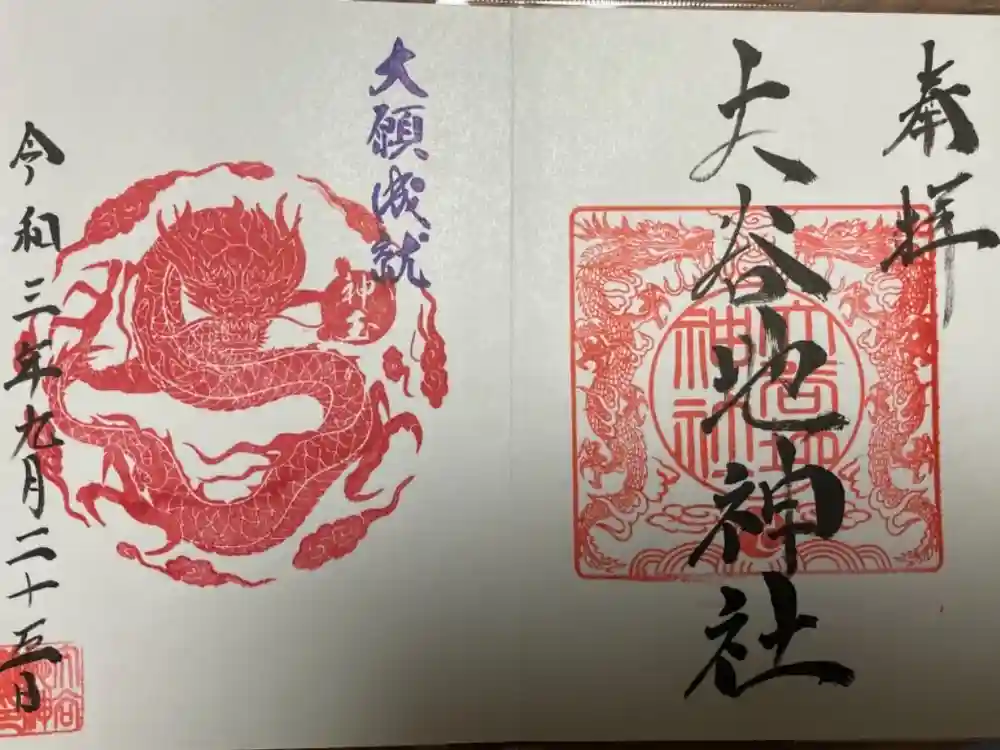 奉拝
大谷地神社
大谷地神社
大願成就
神玉
令和三年九月二十五日